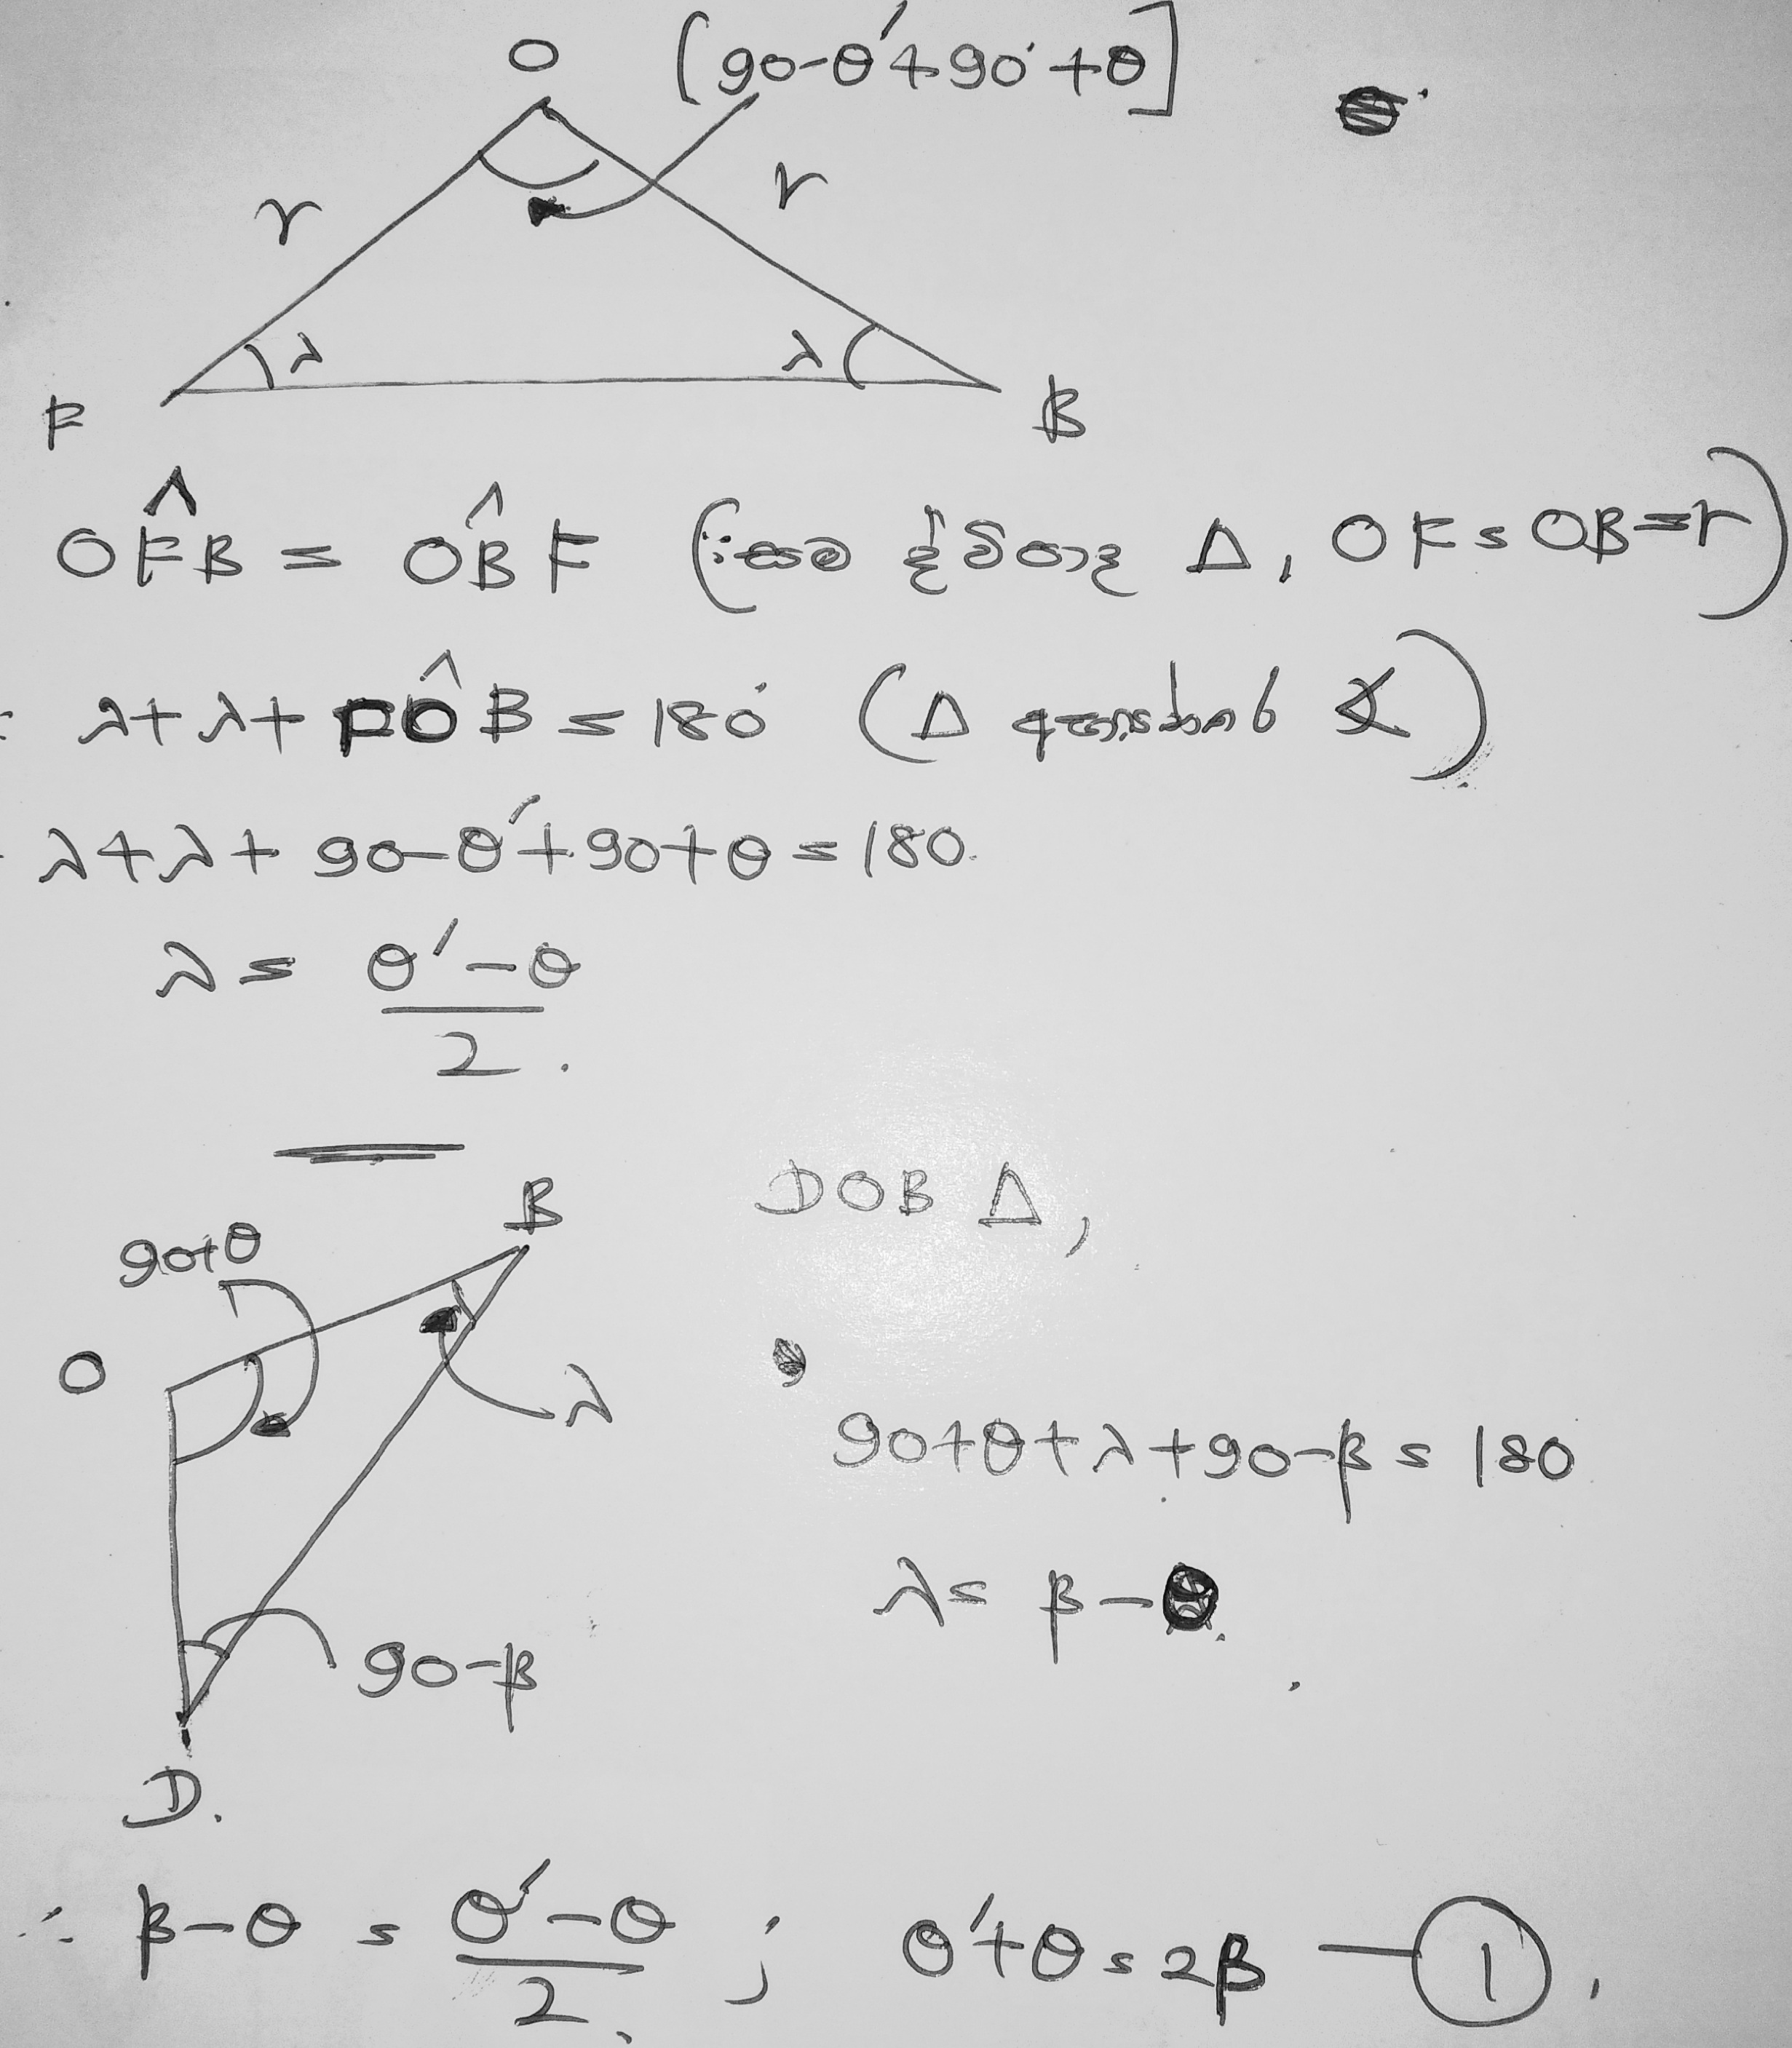 O [90-θ'+90°+θ]
r r
λ λ
F B
OF̂B = OB̂F (∵ සම ද්විපාද Δ, OF = OB = r)
λ+λ+ FÔB = 180° (Δ අභ්‍යන්තර ∢)
λ+λ+ 90-θ'+90+θ = 180.
λ = θ'-θ
2.
B DOB Δ,
90+θ
O
λ
90+θ+λ+90-β = 180
λ = β-θ.
90-β
D.
∴ β-θ = θ'-θ ; θ'+θ = 2β — 1.
2.